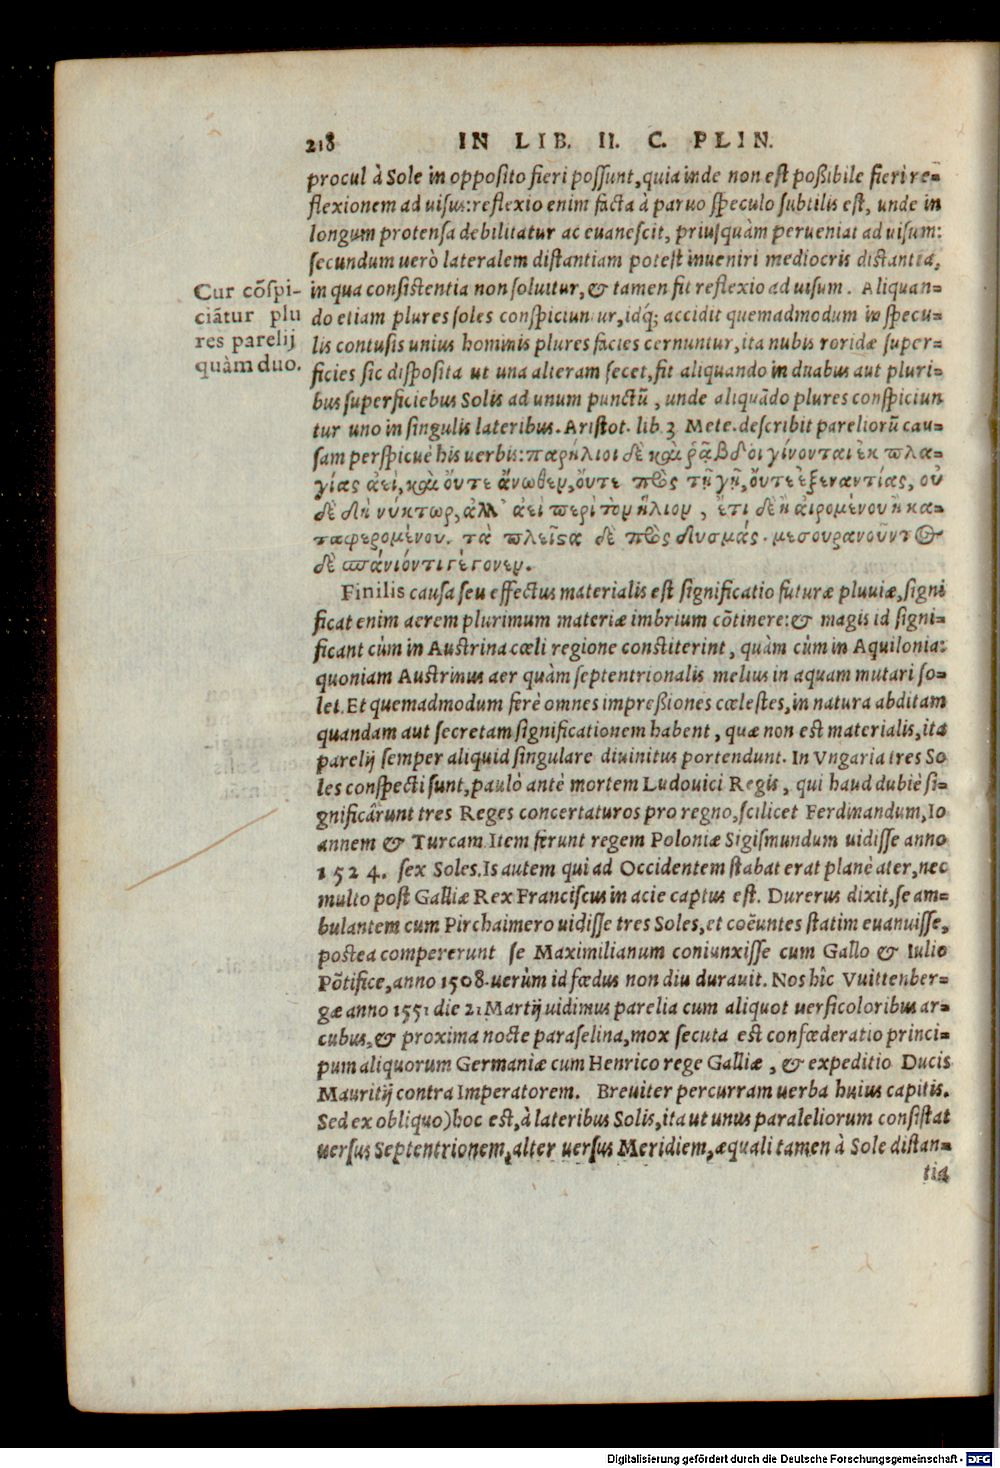 218 IN LIB. II. C. PLIN.
procul à Sole in opposito fieri possunt, quia inde non est poßibile fieri re=
flexionem ad uisus: reflexio enim facta à paruo speculo subtilis est, unde in
longum protensa debilitatur ac euanescit, priusquàm perueniat ad uisum:
secundum uerò lateralem distantiam potest inueniri mediocris distantia,
Cur cõspi-
ciãtur plu
res parelij
quàm duo.
in qua consistentia non soluitur, & tamen fit reflexio ad uisum. Aliquan=
do etiam plures soles conspiciuntur, idq́; accidit quemadmodum in specu=
lis contusis unius hominis plures facies cernuntur, ita nubis roridæ super=
ficies sic disposita ut una alteram secet, fit aliquando in duabus aut pluri=
bus superficiebus Solis ad unum punctũ, unde aliquãdo plures conspiciun
tur uno in singulis lateribus. Aristot. lib. 3 Mete. describit pareliorũ cau=
sam perspicuè his uerbis: παρήλιοι δὲ καὶ ῥάβδοι γίνονται ἐκ πλα=
γίας ἀεὶ, καὶ ὄυτε ἄνωθεν, ὄυτε πρὸς τῇ γῇ, ὄυτε ἐξεναντίας, οὐ
δὲ δὴ νύκτωρ, ἀλλ᾽ ἀεὶ περὶ τὸν ἥλιον, ἔτι δὲ ἢ αἰρομένου ἢ κα=
ταφερομένου. τὰ πλεῖστα δὲ πρὸς δυσμάς. μεσουρανοῦντος
δὲ σπάνιόν τι γέγονεν.
Finilis causa seu effectus materialis est significatio futuræ pluuiæ, signi
ficat enim aerem plurimum materiæ imbrium cõtinere: & magis id signi=
ficant cùm in Austrina cœli regione constiterint, quàm cùm in Aquilonia:
quoniam Austrinus aer quàm septentrionalis melius in aquam mutari so=
let. Et quemadmodum ferè omnes impreßiones cœlestes, in natura abditam
quandam aut secretam significationem habent, quæ non est materialis, ita
parelij semper aliquid singulare diuinitus portendunt. In Vngaria tres So
les conspecti sunt, paulò antè mortem Ludouici Regis, qui haud dubiè si=
gnificârunt tres Reges concertaturos pro regno, scilicet Ferdinandum, Io
annem & Turcam. Item ferunt regem Poloniæ Sigismundum uidisse anno
1524. sex Soles. Is autem qui ad Occidentem stabat erat planè ater, nec
multo post Galliæ Rex Franciscus in acie captus est. Durerus dixit, se am=
bulantem cum Pirchaimero uidisse tres Soles, et coëuntes statim euanuisse,
postea compererunt se Maximilianum coniunxisse cum Gallo & Iulio
Põtifice, anno 1508. uerùm id fœdus non diu durauit. Nos hîc Vuittenber=
gæ anno 1551 die 21 Martij uidimus parelia cum aliquot uersicoloribus ar=
cubus, & proxima nocte paraselina, mox secuta est confœderatio princi=
pum aliquorum Germaniæ cum Henrico rege Galliæ, & expeditio Ducis
Mauritij contra Imperatorem. Breuiter percurram uerba huius capitis.
Sed ex obliquo) hoc est, à lateribus Solis, ita ut unus paraleliorum consistat
uersus Septentrionem, alter uersus Meridiem, æquali tamen à Sole distan=
tia
Digitalisierung gefördert durch die Deutsche Forschungsgemeinschaft - DFG